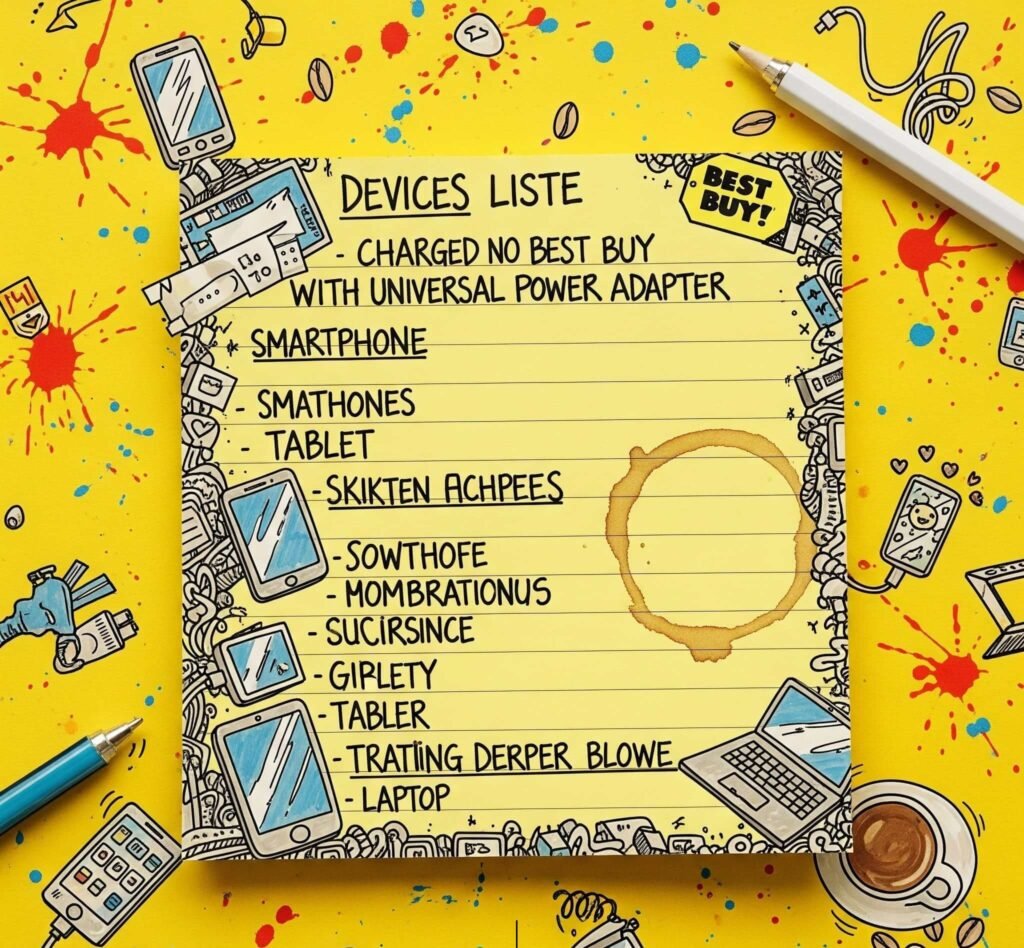 DEVICES LISTE
BEST
BUY!
- CHARGED NO BEST BUY
WITH UNIVERSAL POWER ADAPTER
SMARTPHONE
- SMATHONES
- TABLET
- SKIKTEN ACHPEES
- SOWTHOFE
- MOMBRATIONUS
- SUCIRSINCE
- GIRLETY
- TABLER
- TRATIING DERPER BLOWE
- LAPTOP